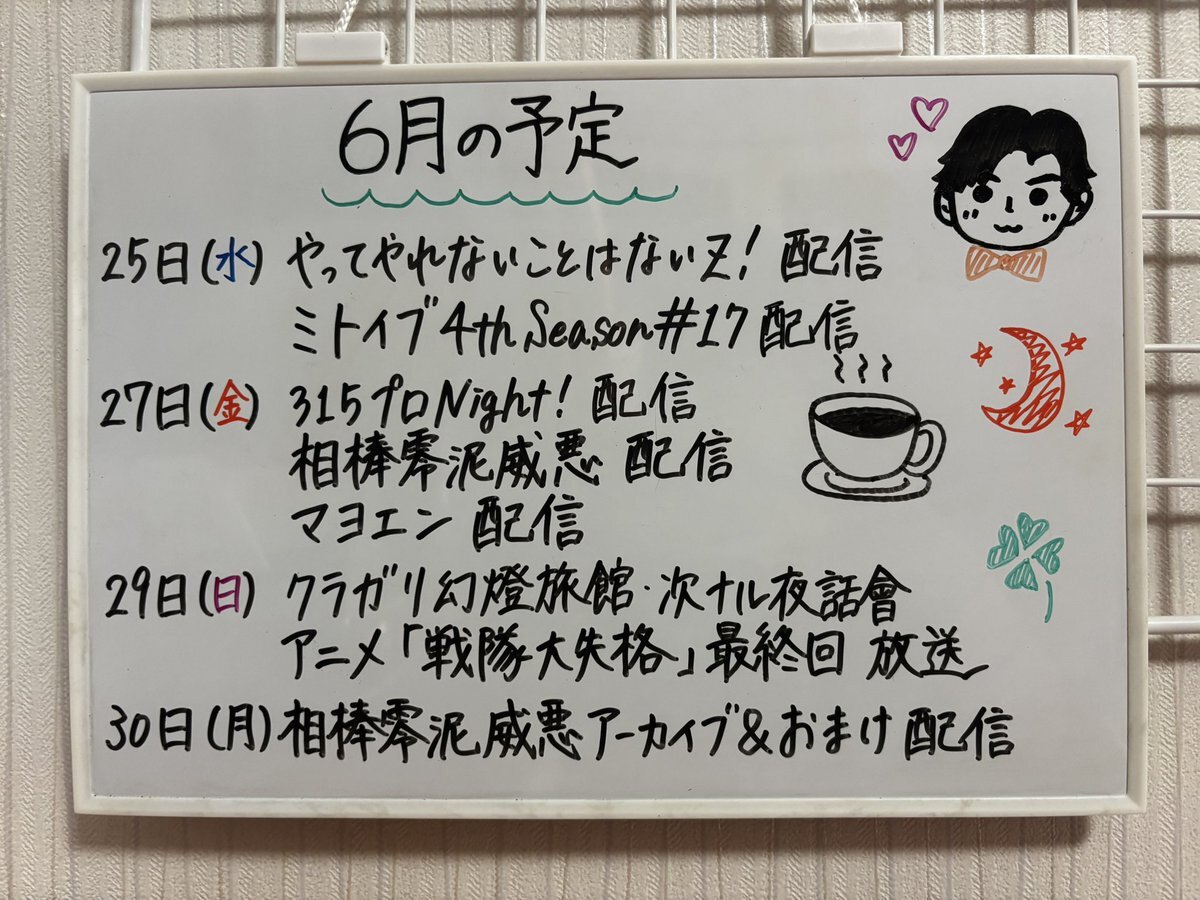 6月の予定
25日(水) やってやれないことはないZ! 配信
ミトイブ4th Season#17 配信
27日(金) 315プロNight! 配信
相棒零泥威悪 配信
マヨエン 配信
29日(日) クラガリ幻燈旅館・次ナル夜話會
アニメ「戦隊大失格」最終回 放送
30日(月) 相棒零泥威悪アーカイブ&おまけ 配信